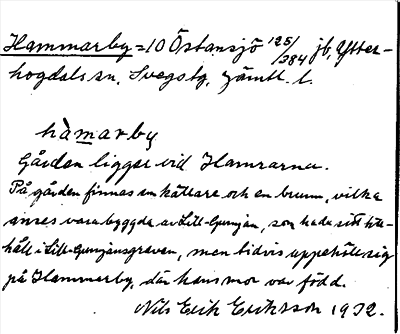 Hammarby = 10 Östansjö 125/384 jb, Ytter-
hogdals sn, Svegs tg, Jämtl. l.
hàmarby
Gården ligger vid Hamrarna.
På gården finnas en källare och en brunn, vilka
anses vara byggda av Lill-Gunnjan, som hade sitt till-
håll i Lill-Gunnjansgraven, men tidvis uppehöll sig
på Hammerby, där hans mor var född.
Nils Erik Eriksson 1932.